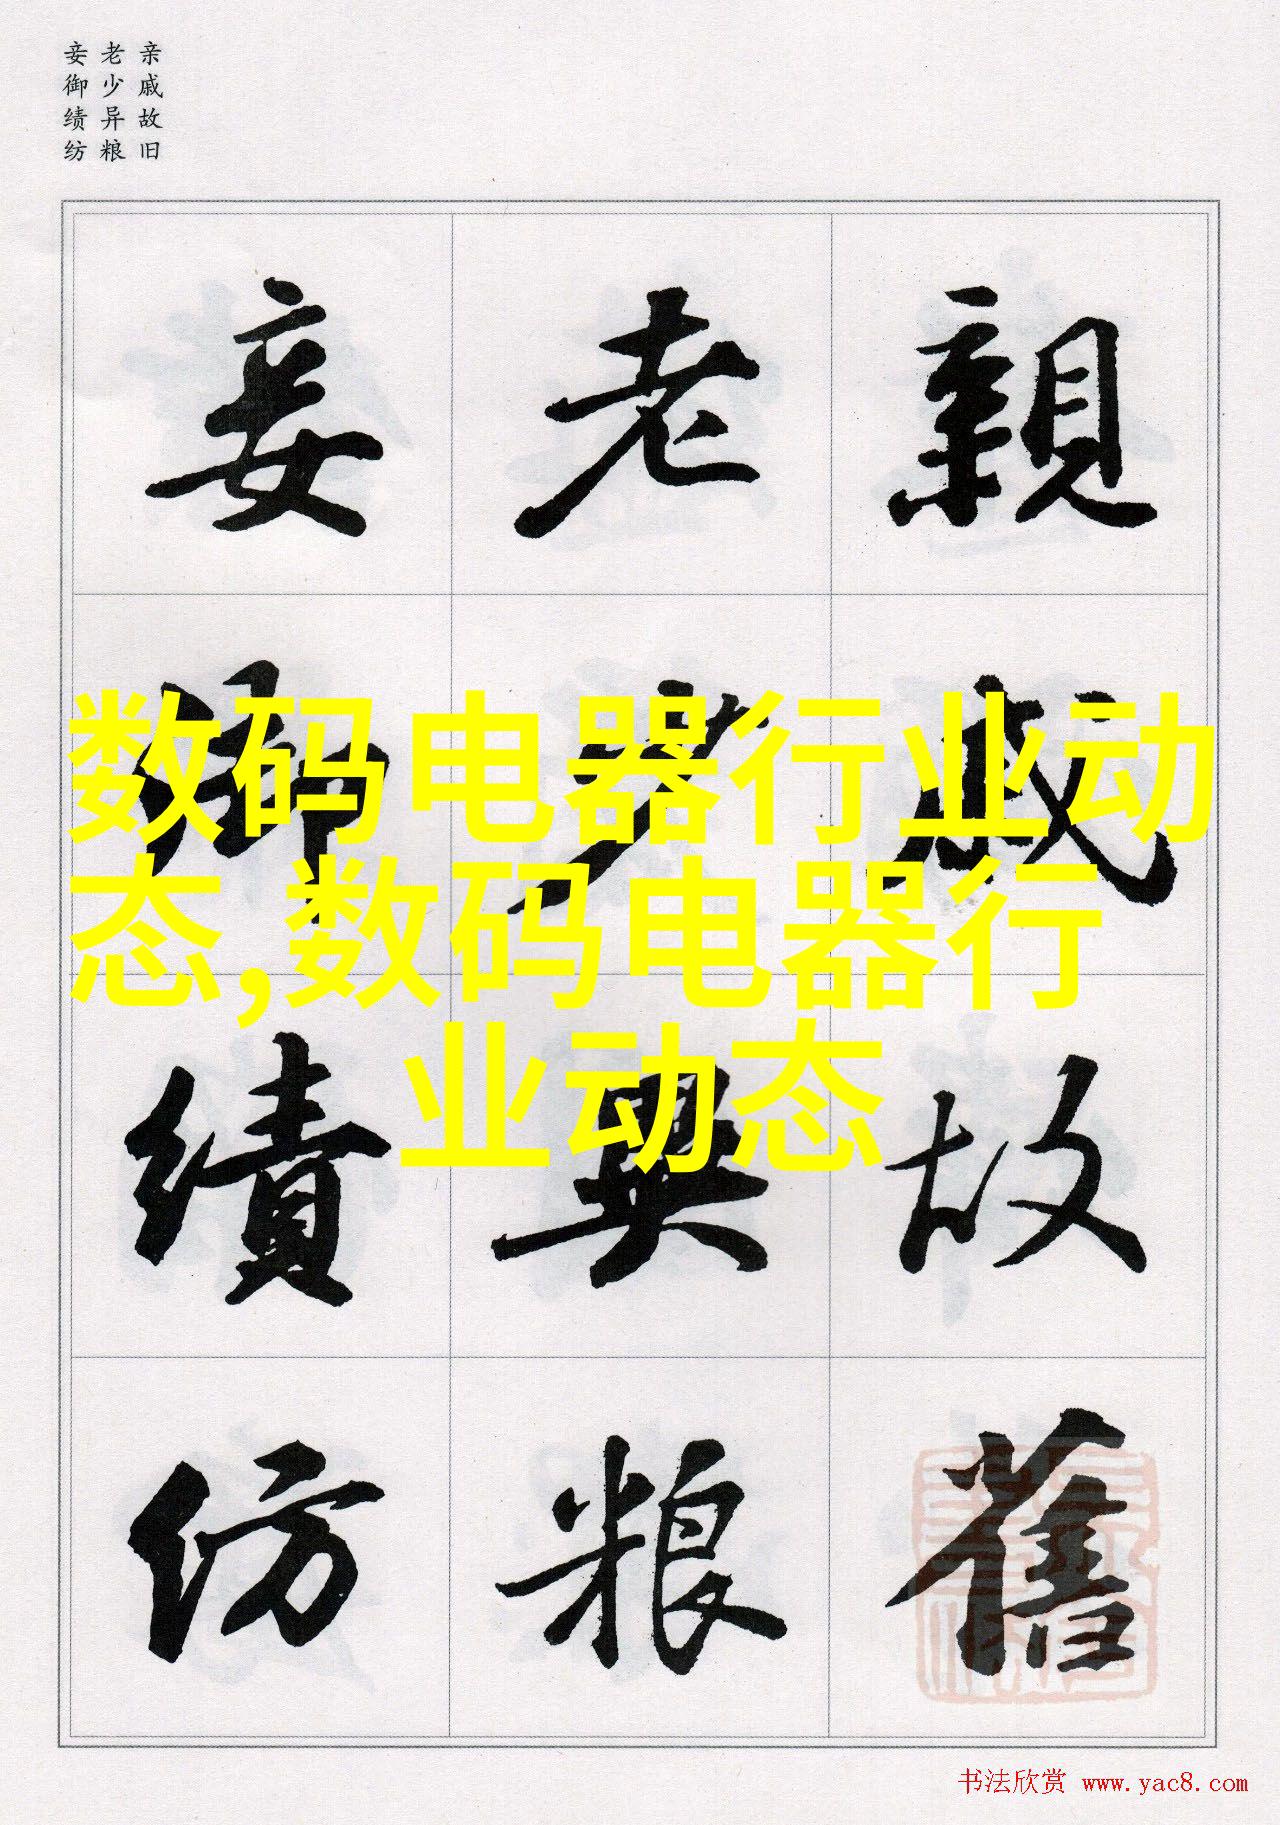 亲戚故旧
老少异粮
妾御绩纺
親戚故舊
老少異粮
妾御績紡
数码电器行业动
态,数码电器行
业动态
书法欣赏 www.yac8.com